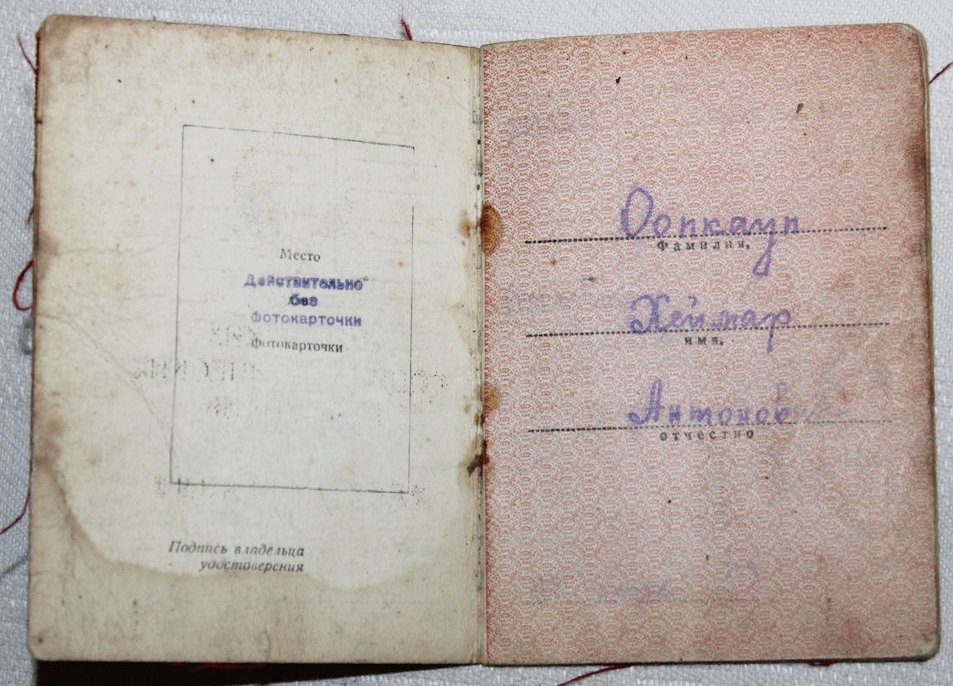 Место
Действительно
без
фотокарточки
фотокарточки
Подпись владельца
удостоверения
Оопкауп
фамилия,
Хеймар
имя,
Антонов
отчество